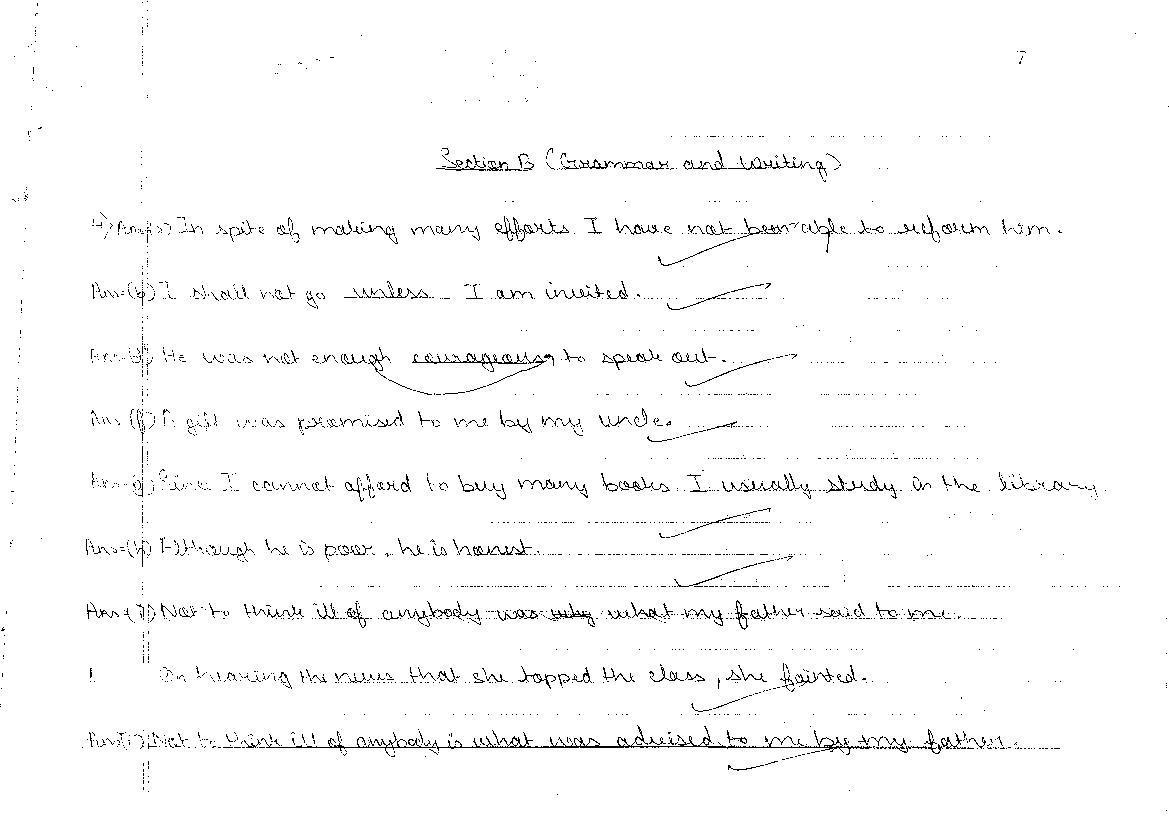 7
Section B (Grammar and Writing)
4) Ans(a) In spite of making many efforts I have not been able to reform him.
Ans-(b) I shall not go unless I am invited.
He was not enough courageous to speak out.
Ans (f) A gift was promised to me by my uncle.
Ans-(g) Since I cannot afford to buy many books I usually study in the library
Ans-(h) Although he is poor, he is honest.
Not to think ill of anybody was why what my father said to me.
On hearing the news that she topped the class, she fainted.
Ans(i) Not to think ill of anybody is what was advised to me by my father.